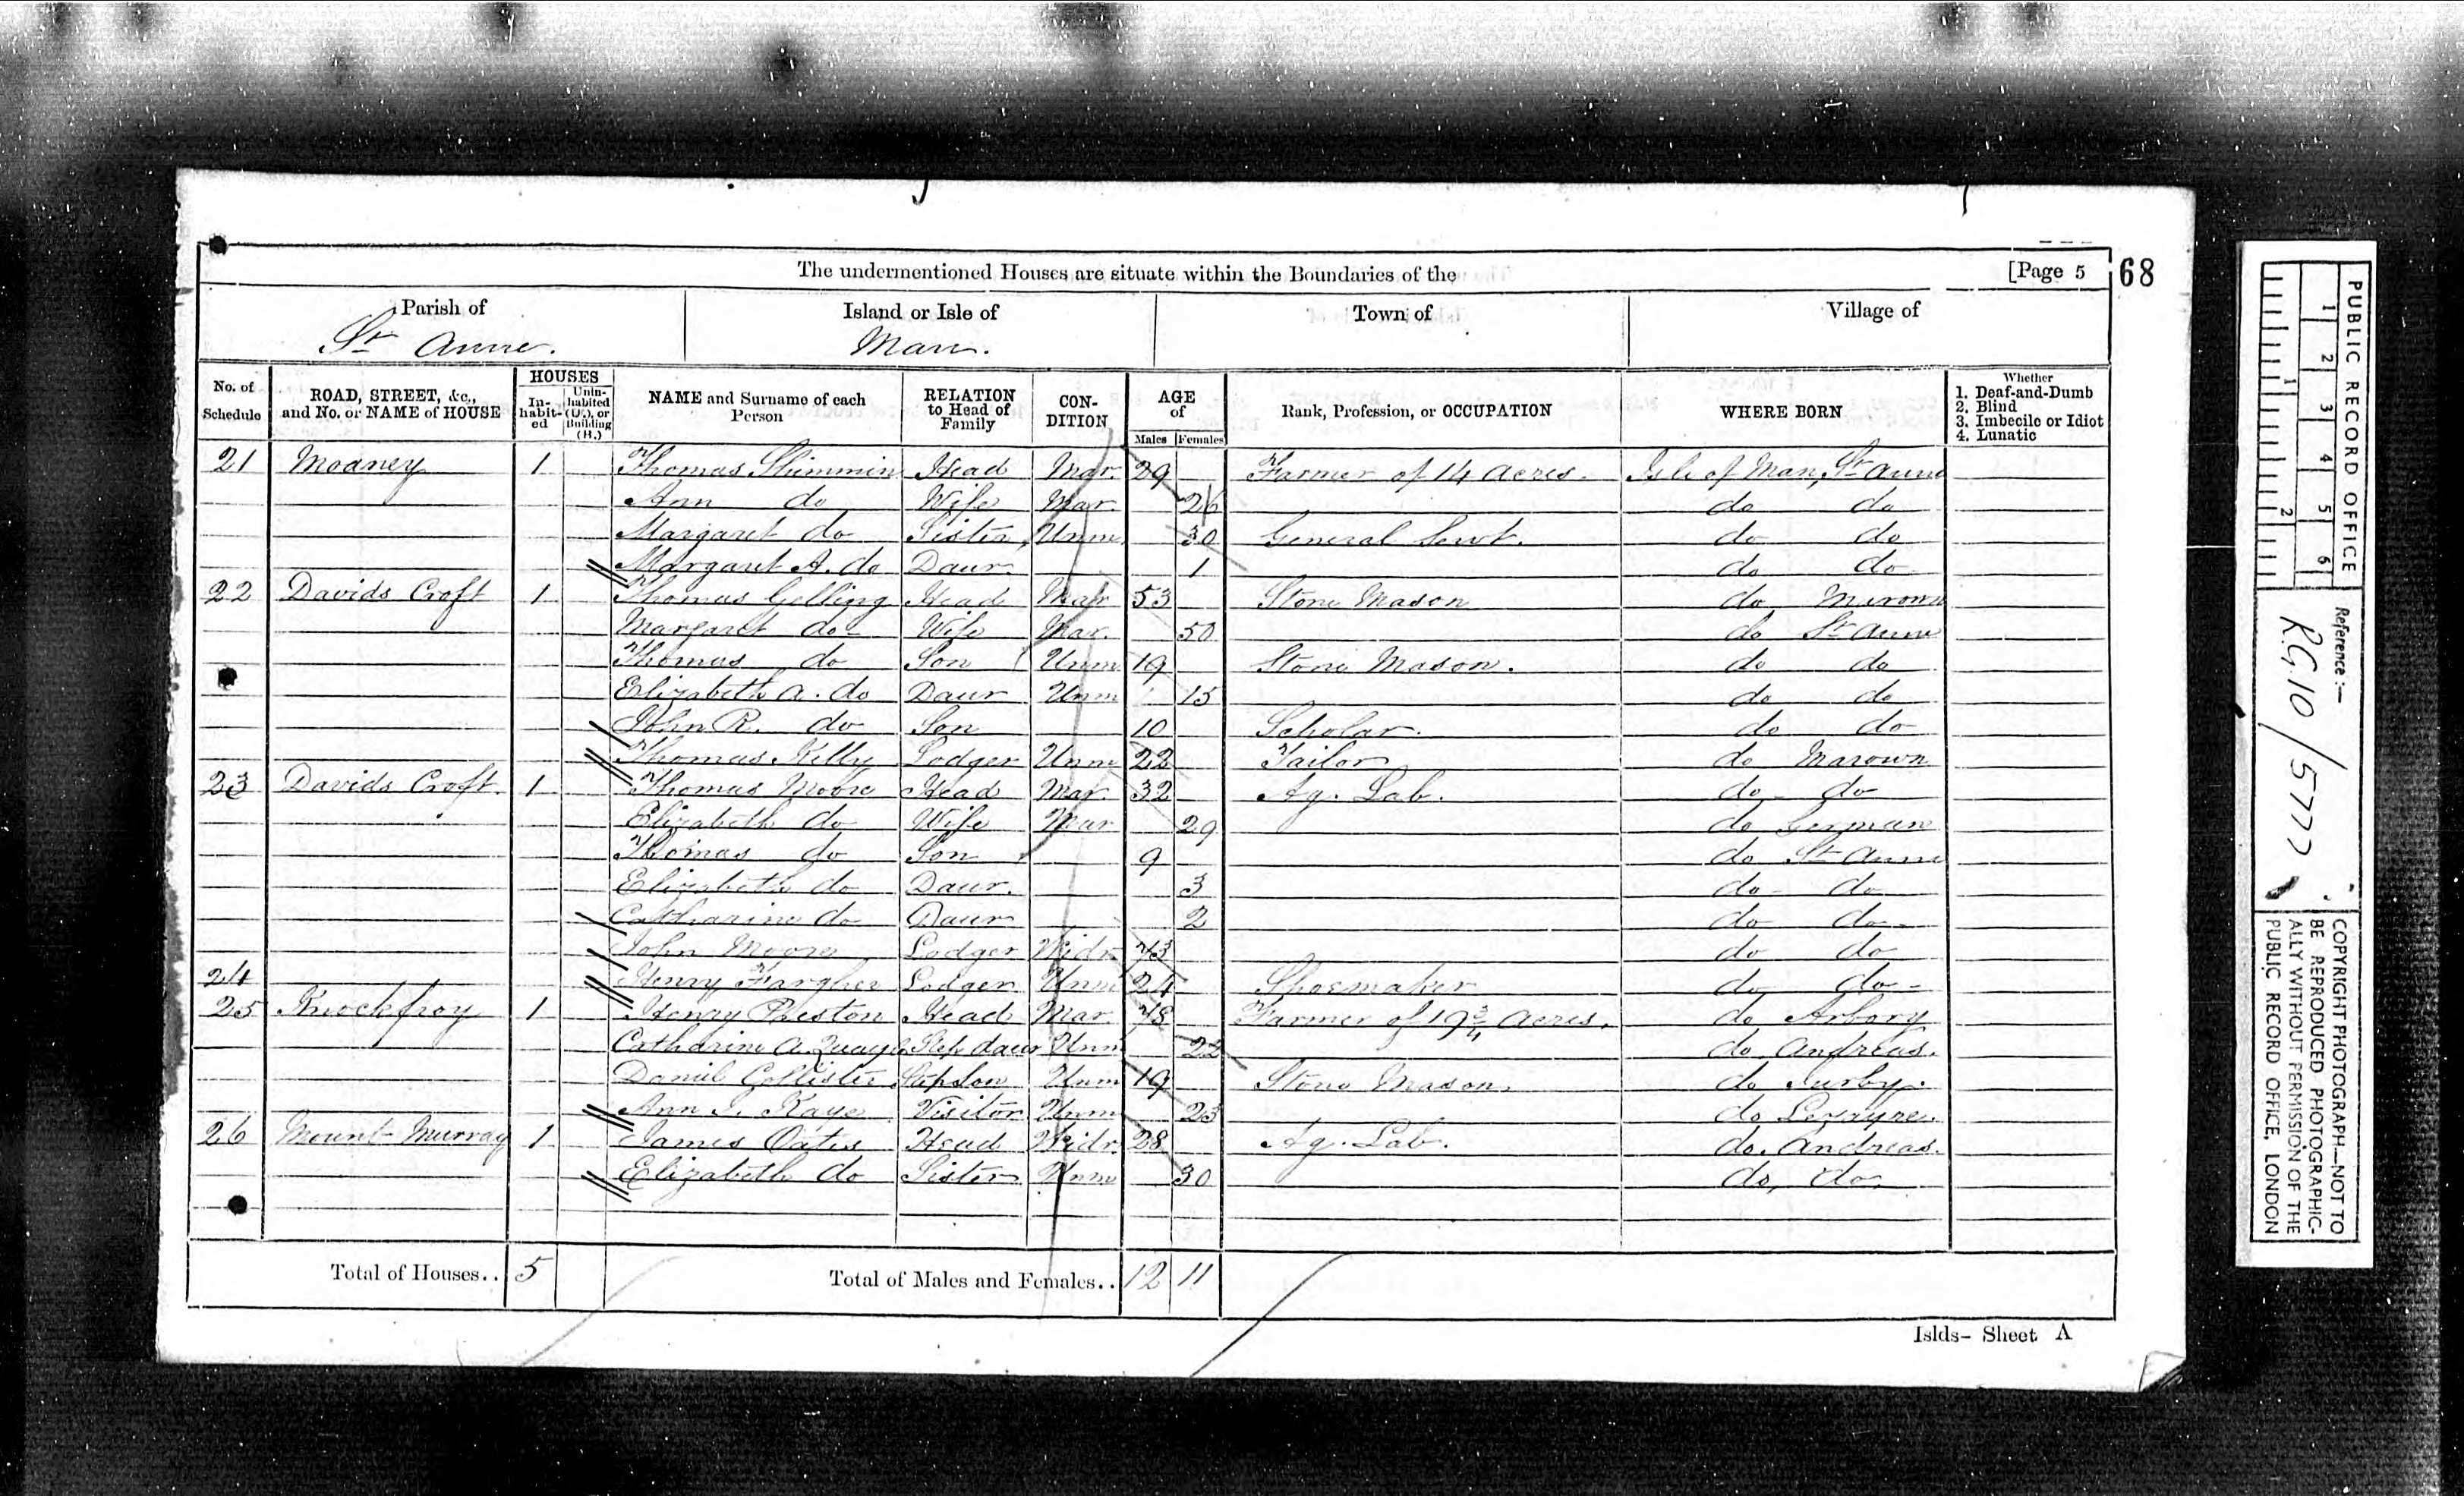 The undermentioned Houses are situate within the Boundaries of the [Page 5 68
Parish of Island or Isle of Town of Village of
St Anne. Man.
No. of Schedule ROAD, STREET, &c., and No. or NAME of HOUSE HOUSES Inhabited Uninhabited (U.), or Building (B.) NAME and Surname of each Person RELATION to Head of Family CONDITION AGE of Males Females Rank, Profession, or OCCUPATION WHERE BORN Whether 1. Deaf-and-Dumb 2. Blind 3. Imbecile or Idiot 4. Lunatic
21 Moaney 1 Thomas Skimmin Head Mar. 29 Farmer of 14 Acres. Isle of Man, St Anne
Ann do Wife Mar. 26 do do
Margaret do Sister Unm 30 General Servt. do do
Margaret A. do Daur. 1 do do
22 Davids Croft 1 Thomas Gelling Head Mar 53 Stone Mason do Marown
Margaret do Wife Mar. 50 do St Anne
Thomas do Son Unm 19 Stone Mason. do do
Elizabeth A. do Daur Unm 15 do do
John R. do Son 10 Scholar. do do
Thomas Kelly Lodger Unm 22 Tailor do Marown
23 Davids Croft 1 Thomas Moore Head Mar. 32 Ag. Lab. do do
Elizabeth do Wife Mar 29 do German
Thomas do Son 9 do St Anne
Elizabeth do Daur. 3 do do
Catharine do Daur 2 do do
John Moore Lodger Widr 73 do do
24 Henry Fargher Lodger Unm 24 Shoemaker do do
25 Knockfroy 1 Henry Preston Head Mar. 78 Farmer of 19 3/4 Acres. do Arbory
Catharine A. Quayle Step daur Unm 22 do Andreas.
Daniel Collister Stepson Unm 19 Stone Mason. do Jurby.
Ann J. Kaye Visitor Unm 23 do Lezayre.
26 Mount Murray 1 James Oates Head Widr. 28 Ag. Lab. do. Andreas.
Elizabeth do Sister Unm 30 do, do.
Total of Houses.. 5 Total of Males and Females.. 12 11
Islds- Sheet A
PUBLIC RECORD OFFICE
1 2 3 4 5 6
1 2
Reference :-
RG10/5777
COPYRIGHT PHOTOGRAPH—NOT TO
BE REPRODUCED PHOTOGRAPHIC-
ALLY WITHOUT PERMISSION OF THE
PUBLIC RECORD OFFICE, LONDON